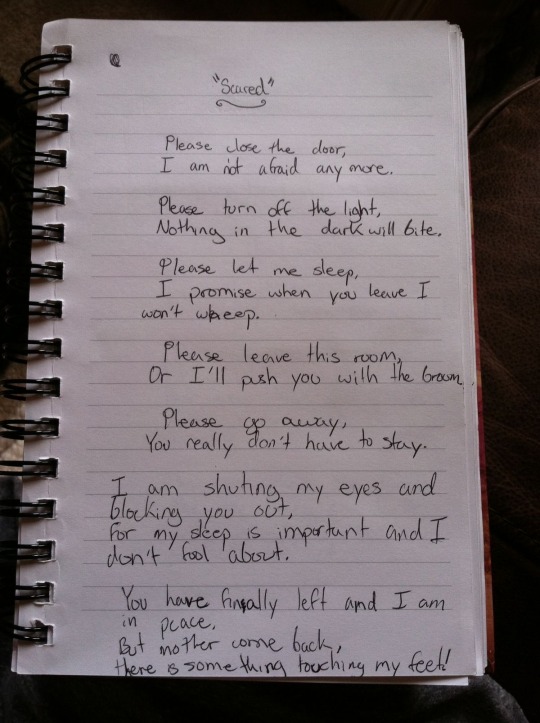 "Scared"
Please close the door,
I am not afraid any more.
Please turn off the light,
Nothing in the dark will bite.
Please let me sleep,
I promise when you leave I
won't weep.
Please leave this room,
Or I'll push you with the broom.
Please go away,
You really don't have to stay.
I am shuting my eyes and
blocking you out,
for my sleep is important and I
don't fool about.
You have finally left and I am
in peace,
But mother come back,
there is something touching my feet!